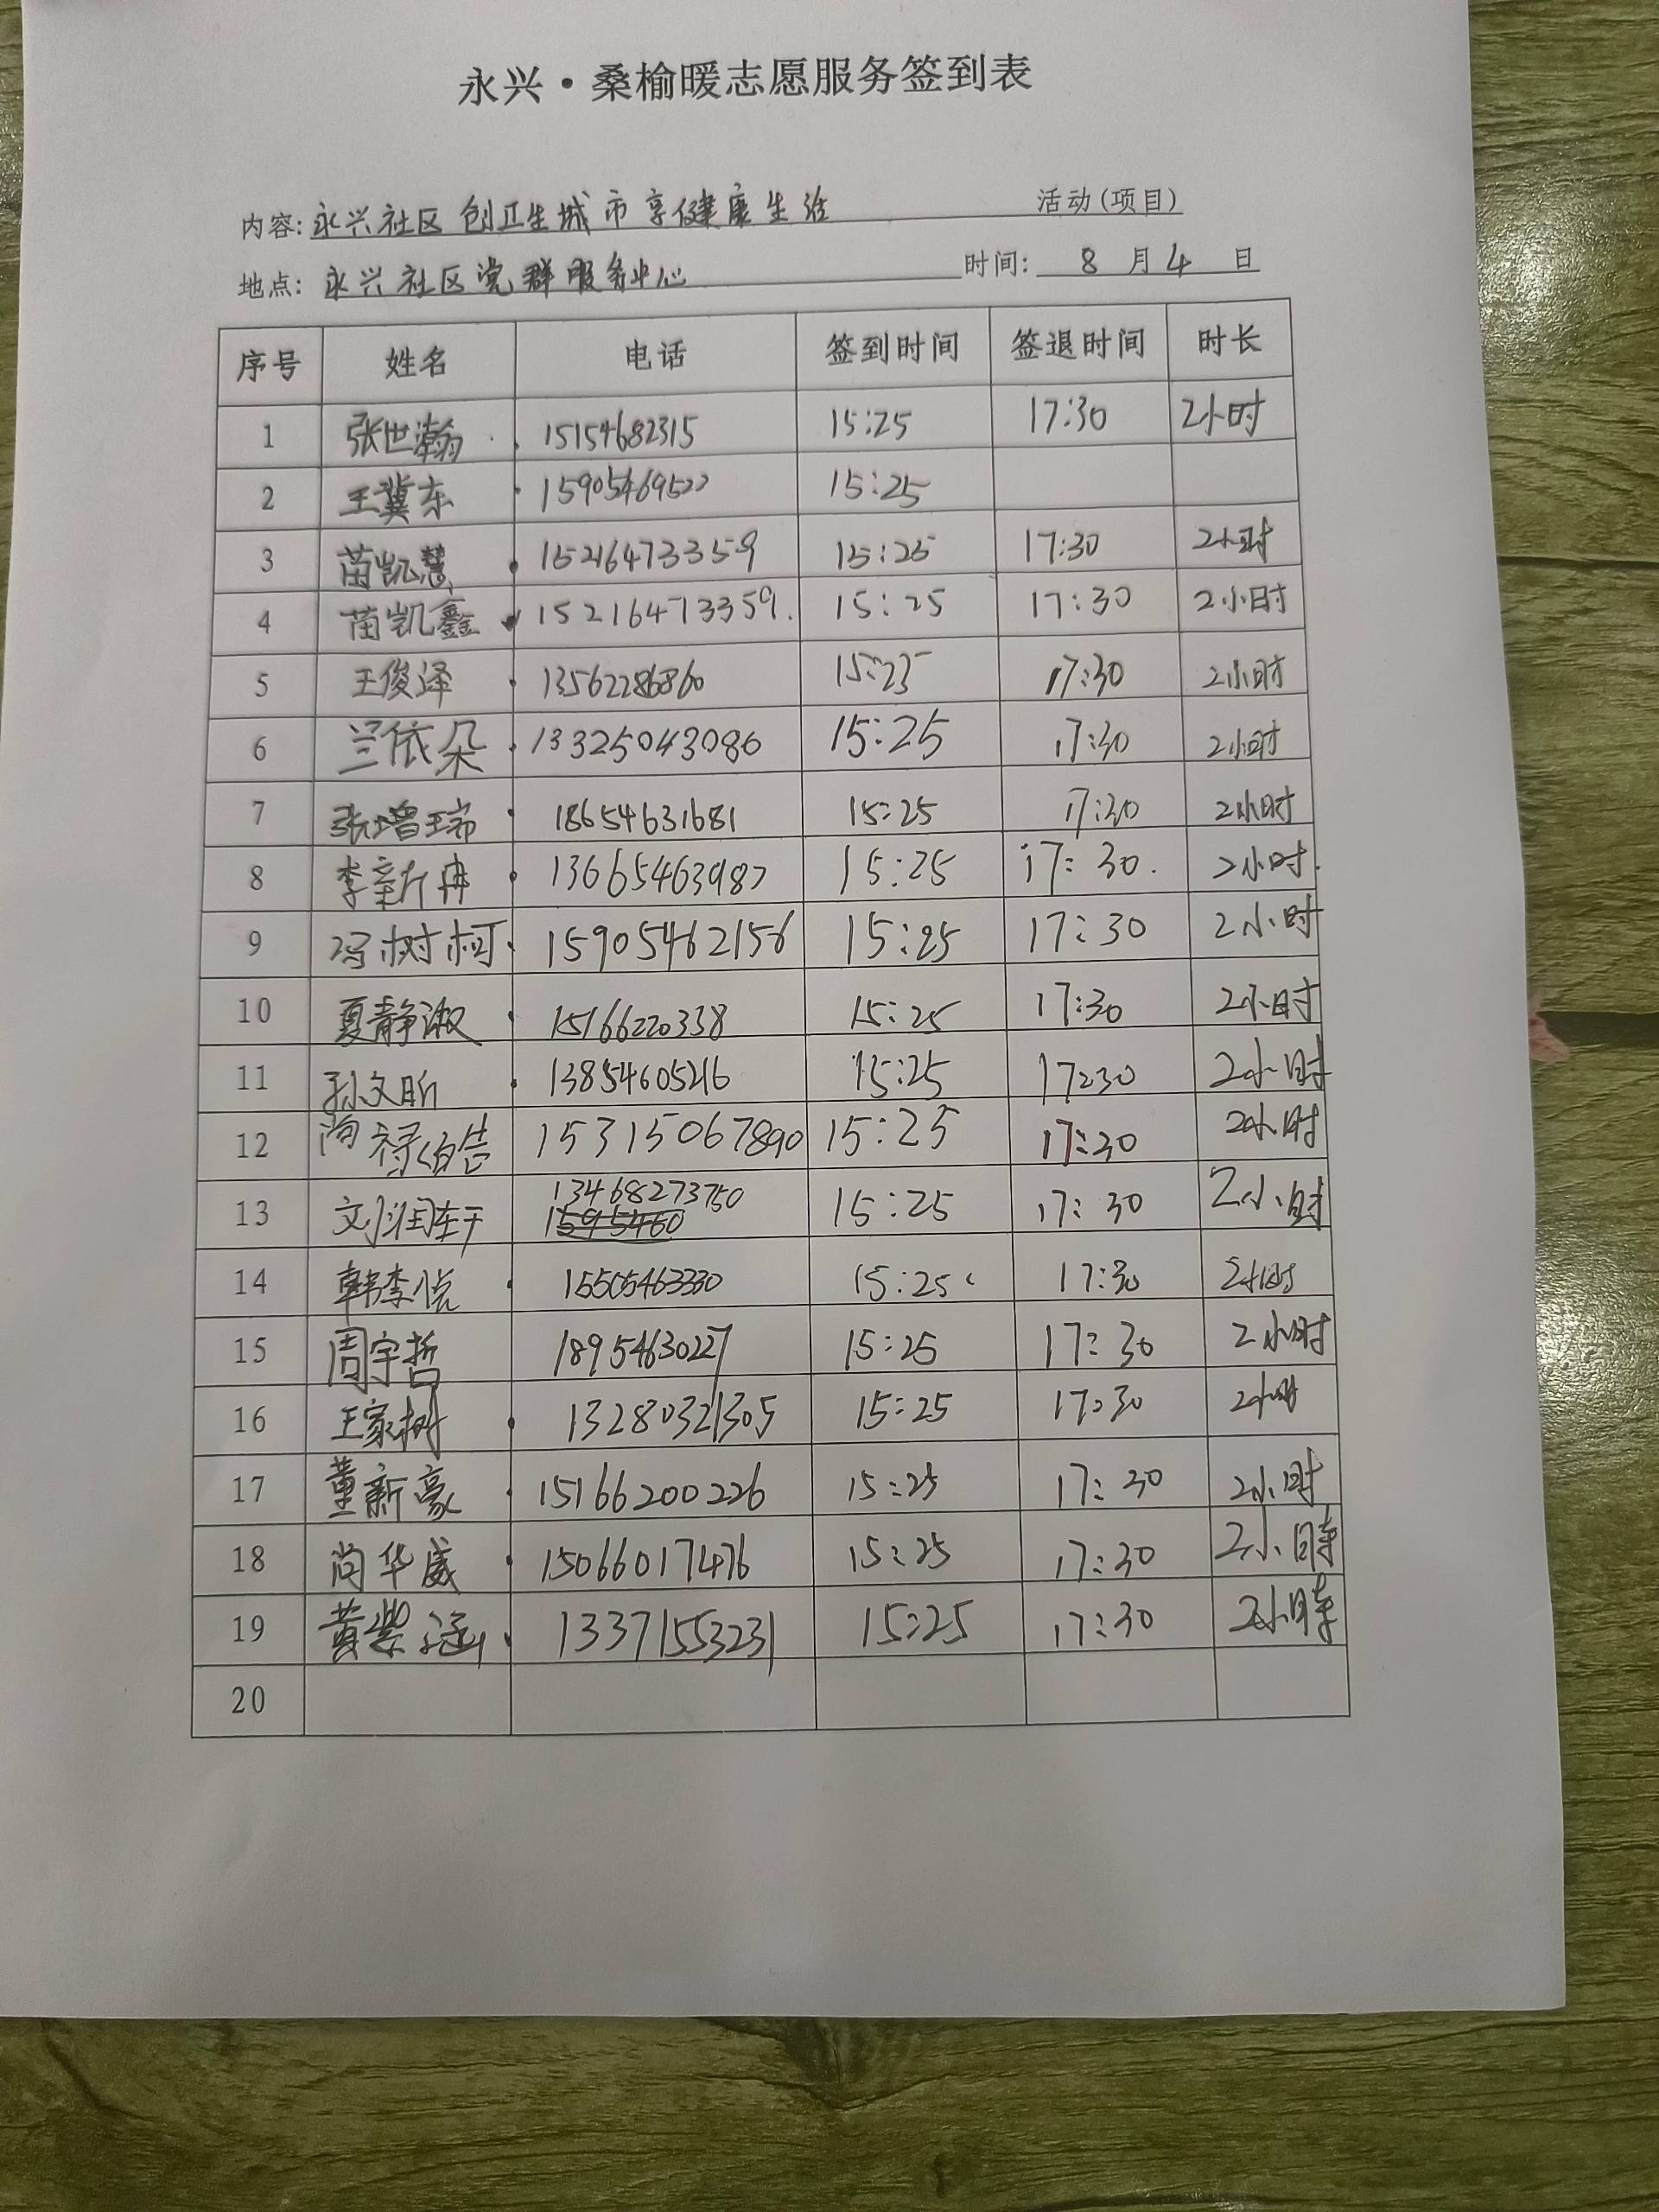 永兴·桑榆暖志愿服务签到表
内容: 永兴社区 创卫生城市享健康生活 活动(项目)
地点: 永兴社区党群服务中心 时间: 8 月 4 日
序号 姓名 电话 签到时间 签退时间 时长
1 张世瀚 15154682315 15:25 17:30 2小时
2 王冀东 15905469522 15:25
3 苗凯慧 15216473359 15:25 17:30 2小时
4 苗凯鑫 15216473359. 15:25 17:30 2小时
5 王俊泽 13562286860 15:25 17:30 2小时
6 兰依朵 13325043086 15:25 17:30 2小时
7 张增瑞 18654631681 15:25 17:30 2小时
8 李新冉 13665463987 15:25 17:30. 2小时.
9 冯树柯 15905462156 15:25 17:30 2小时
10 夏静淑 15166220338 15:25 17:30 2小时
11 孙文昕 13854605216 15:25 17:30 2小时
12 尚禄 15315067890 15:25 17:30 2小时
13 13468273750 15:25 17:30 2小时
14 韩李悦 15505463330 15:25 17:30 2小时
15 周宇哲 18954630227 15:25 17:30 2小时
16 王家树 13280321305 15:25 17:30 2小时
17 董新豪 15166200226 15:25 17:30 2小时
18 尚华威 15066017476 15:25 17:30 2小時
19 黄紫涵 13371553231 15:25 17:30 2小時
20